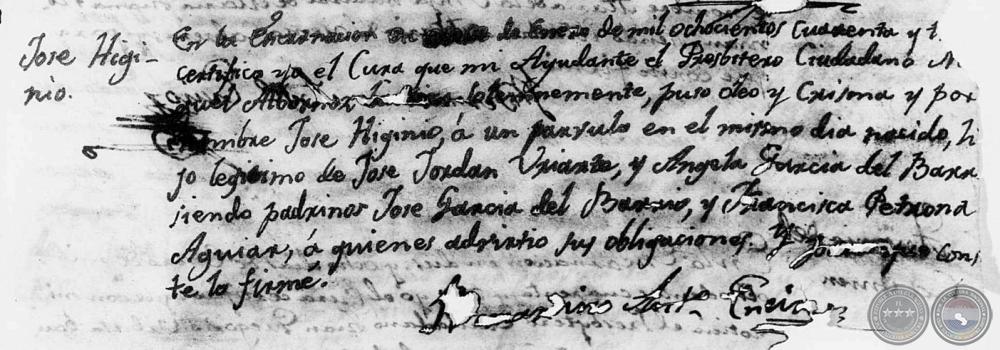 Jose Higi-
nio.
En la Encarnacion de Enero de mil ochocientos cuarenta y t.
certifico yo el Cura que mi Ayudante el Presbitero Ciudadano
Albornoz solemnemente, puso oleo y Crisma y por
nombre Jose Higinio, á un parvulo en el mismo dia nacido, hi
jo legitimo de Jose Jordan Uriarte, y Angela Garcia del Barr
siendo padrinos Jose Garcia del Barrio, y Francisca Petrona
Aguiar, á quienes advirtio sus obligaciones. Y cons
te lo firmé.